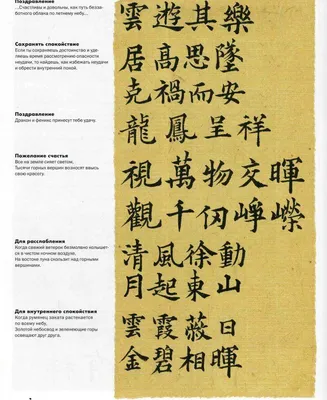 Поздравление
...Счастливы и довольны, как путь беззаботного облака по летнему небу...
雲遊其樂
Сохранять спокойствие
Если ты сохраняешь достоинство и уделяешь время рассмотрению опасности неудачи, то найдешь, как избежать неудачи и обрести внутренний покой.
居高思墜
克禍而安
Поздравление
Дракон и феникс принесут тебе удачу.
龍鳳呈祥
Пожелание счастья
Все на земле сияет светом.
Тысячи горных вершин возносят ввысь свою красоту.
視萬物交暉
觀千仞崢嶸
Для расслабления
Когда свежий ветерок безмолвно колышется в чистом ночном воздухе,
На востоке луна скользит над горными вершинами.
清風徐動
月起東山
Для внутреннего спокойствия
Когда румянец заката растекается по всему небу,
Золотой небосвод и зеленеющие горы освещают друг друга.
雲霞蔽日
金碧相暉